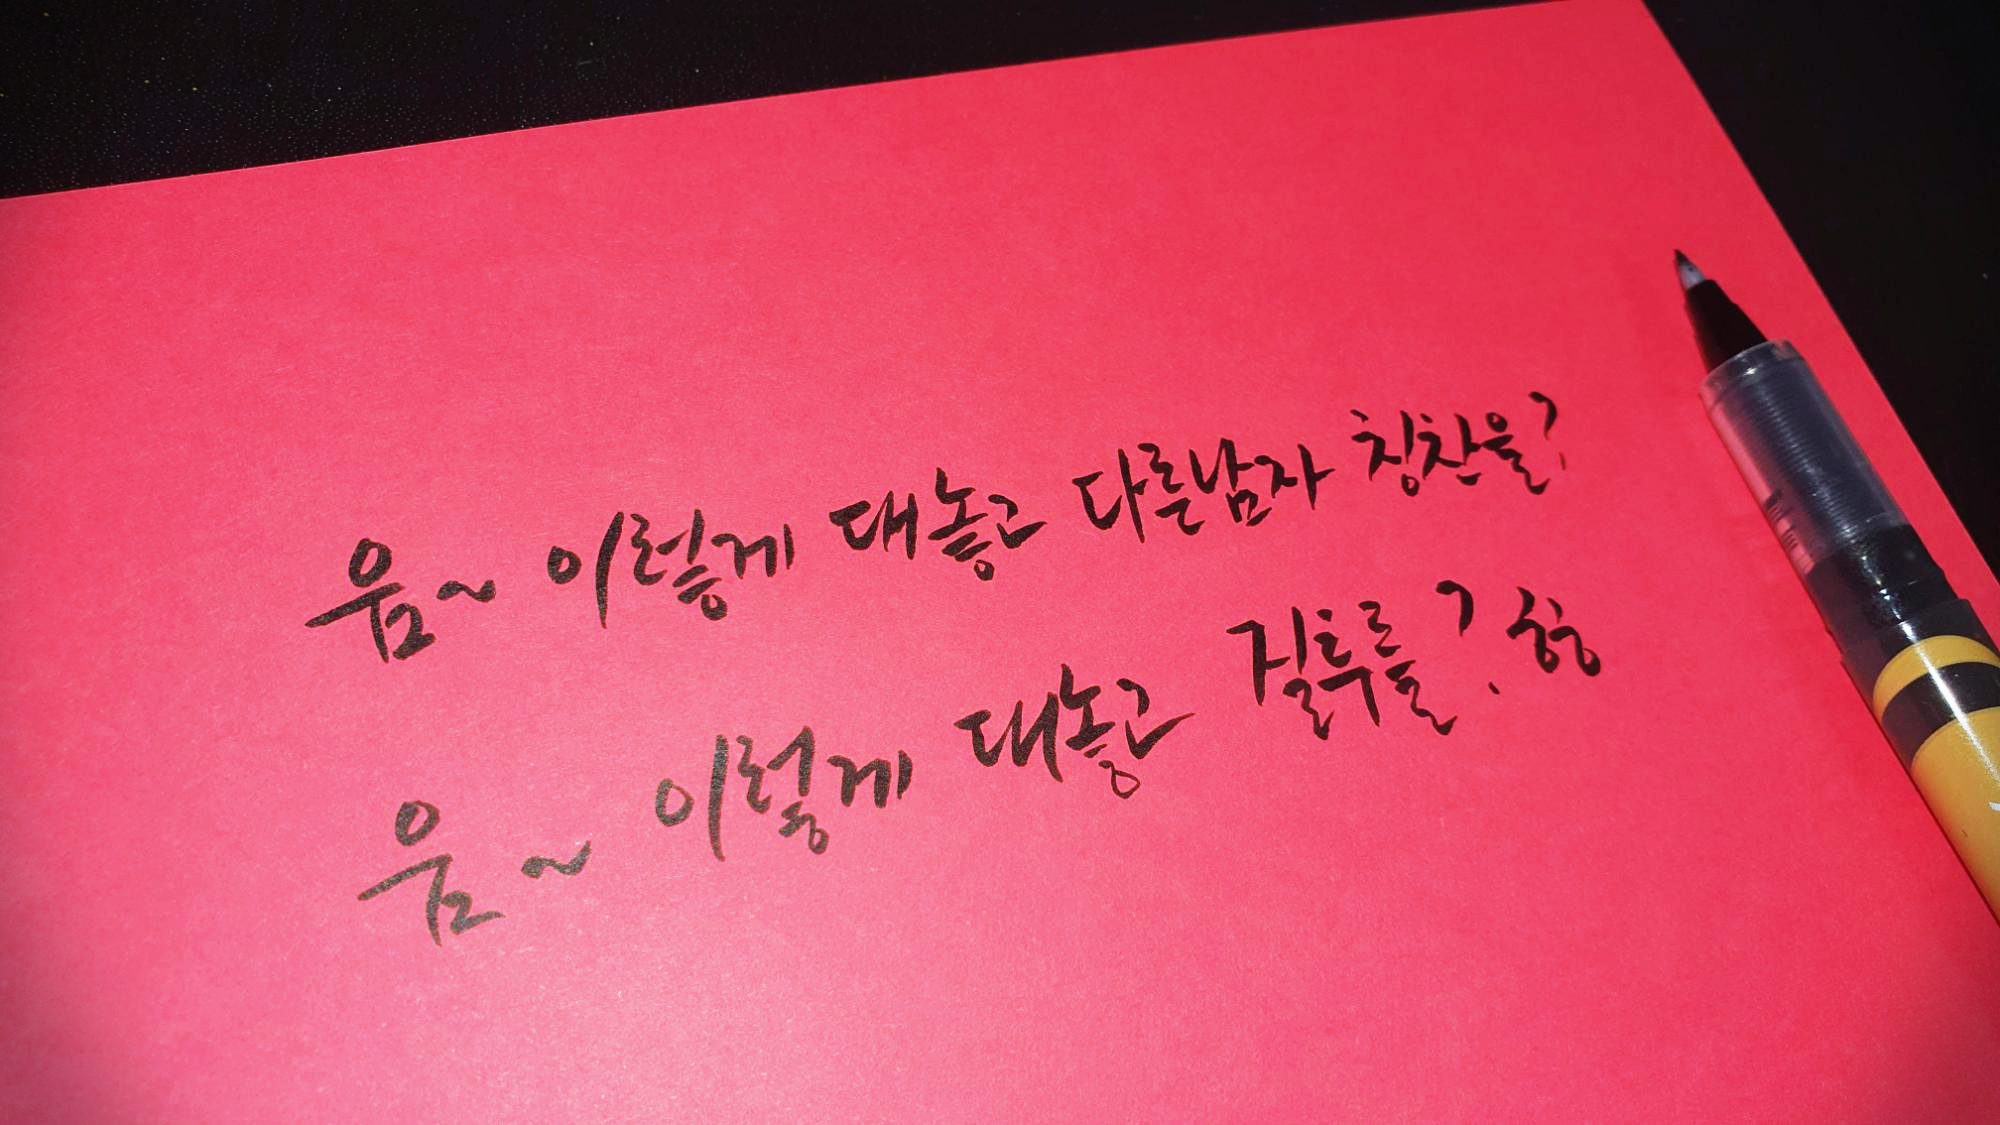 음~ 이렇게 대놓고 다른남자 칭찬을?
음~ 이렇게 대놓고 질투를? 헝